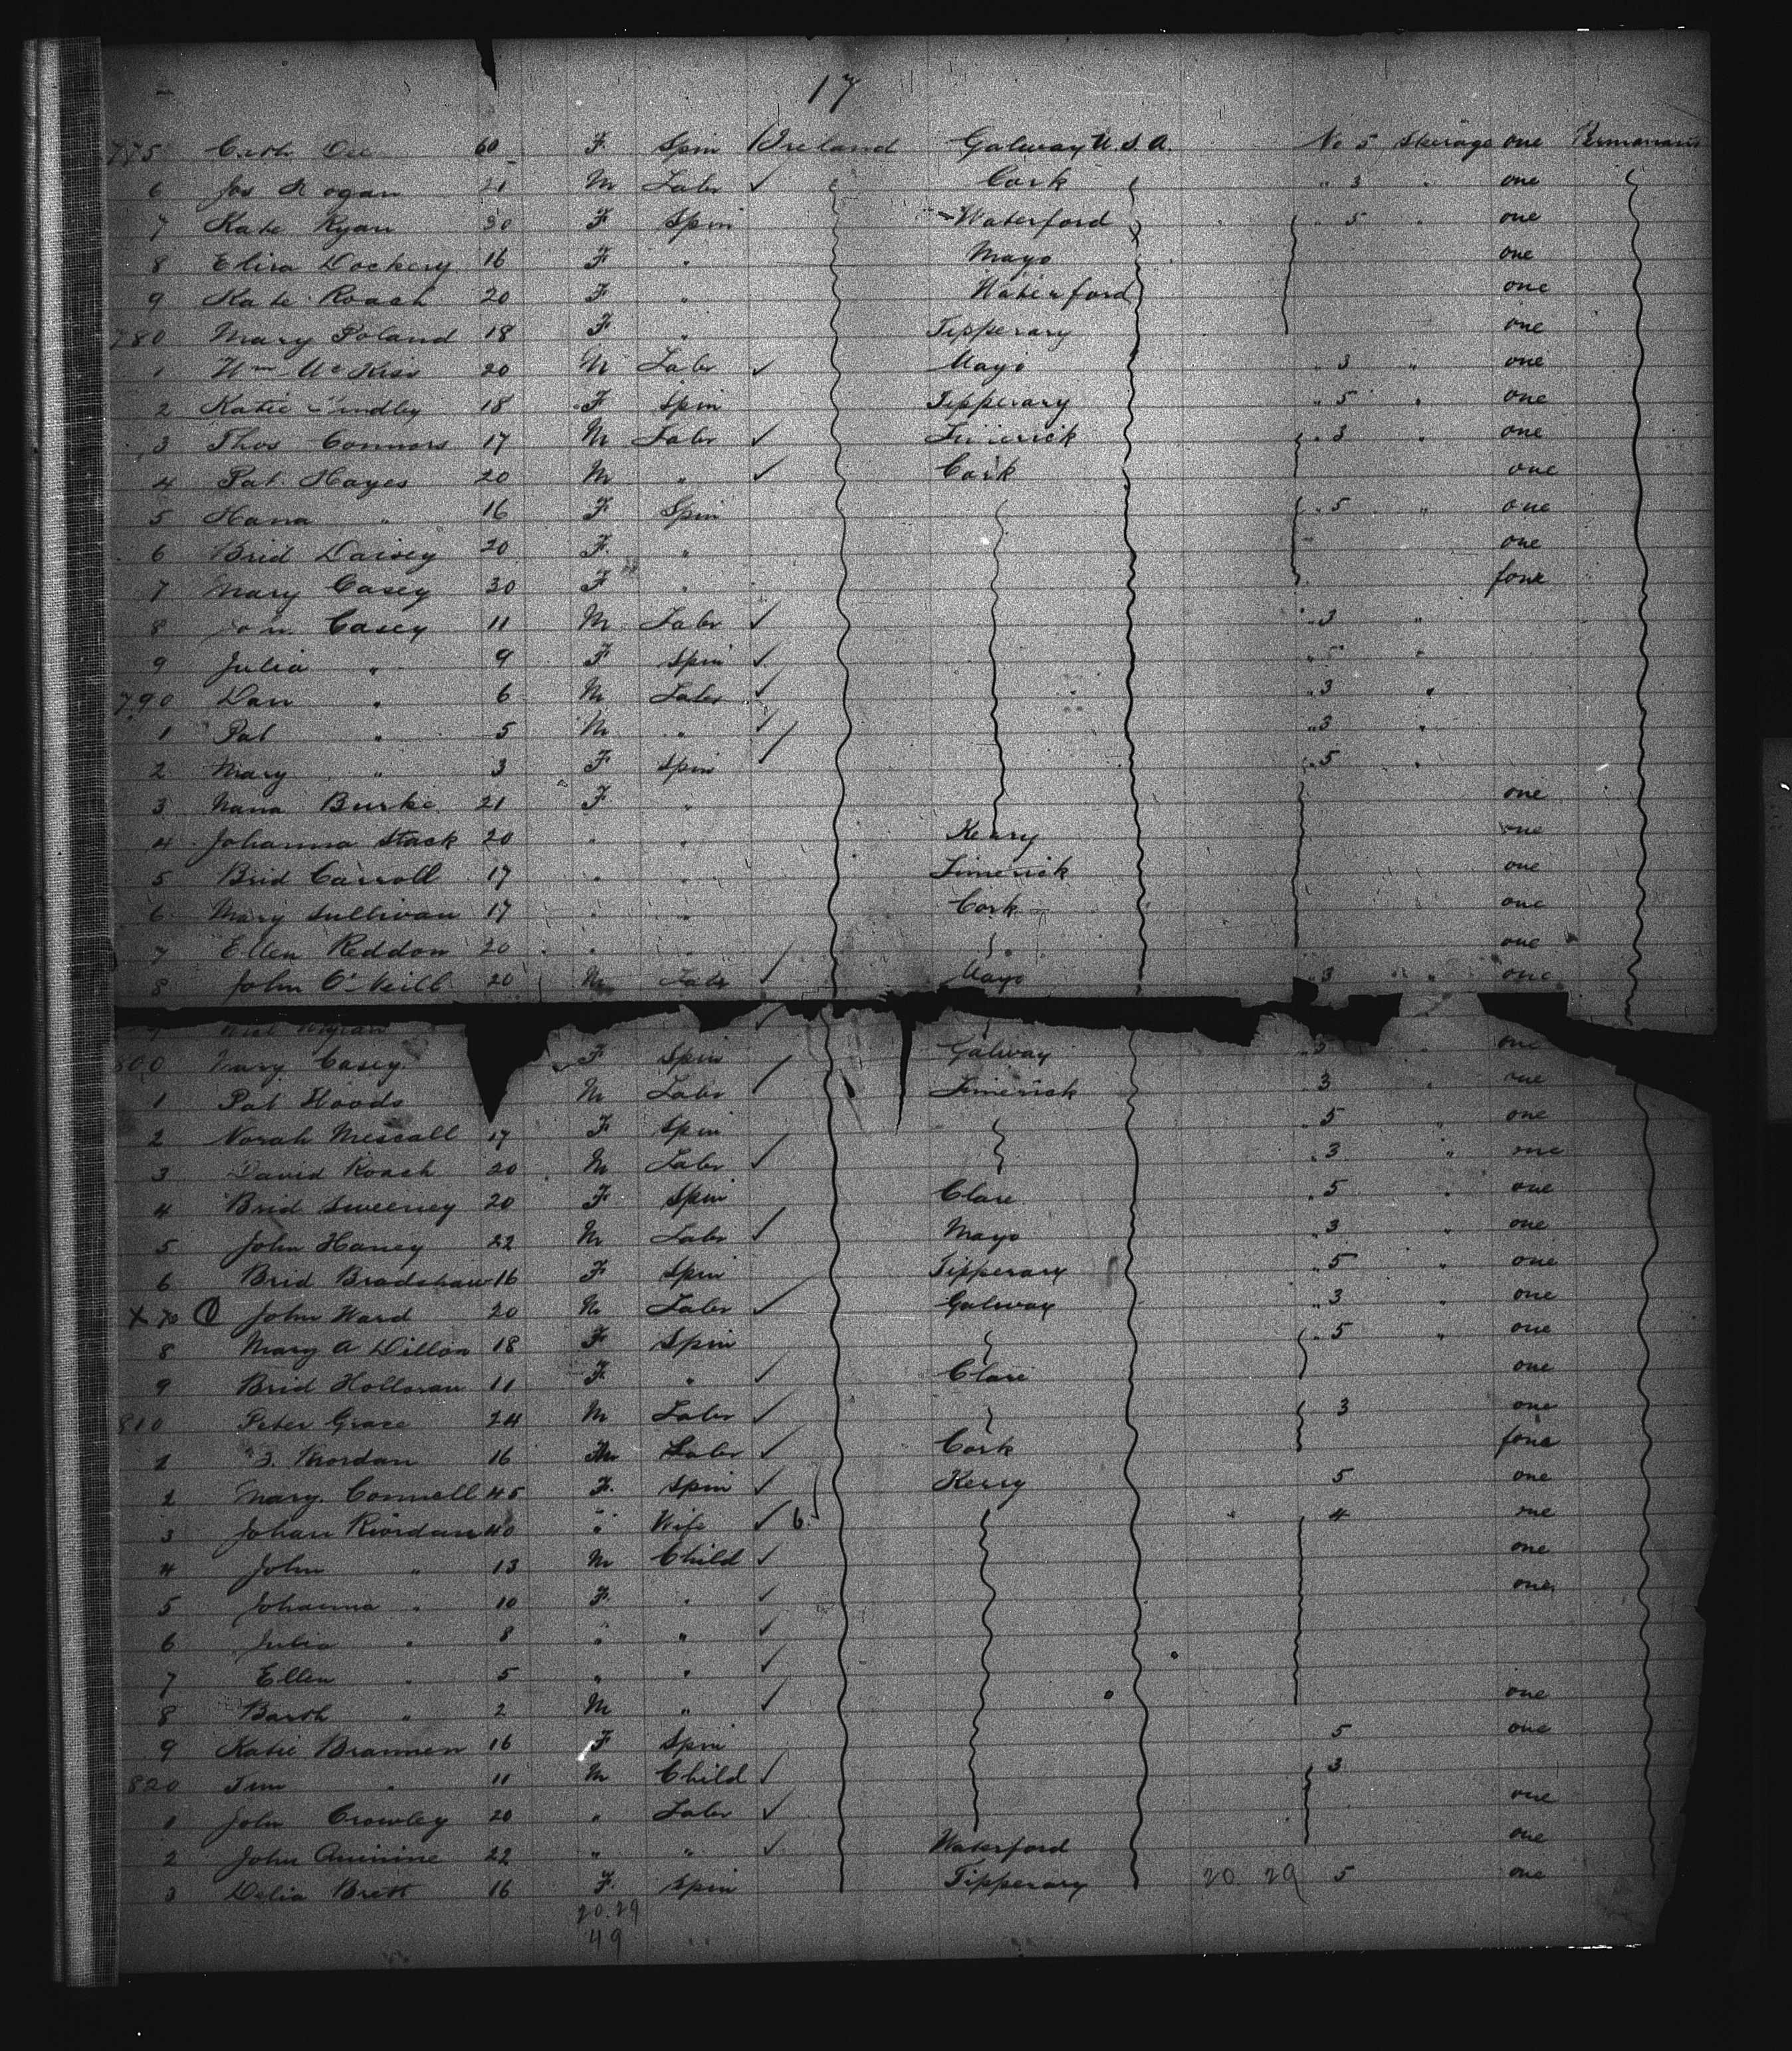 17
775 Cath 60 F Spin Ireland Galway U.S.A. No 5 Steerage one
6 Jas Hogan 21 M Labr ✓ Cork " 3 " one
7 Kate Ryan 30 F Spin Waterford " 5 " one
8 Eliza Dockery 16 F " Mayo one
9 Kate Roach 20 F " Waterford one
780 Mary Poland 18 F " Tipperary one
1 Wm 20 M Labr ✓ Mayo " 3 " one
2 Katie 18 F Spin Tipperary " 5 " one
3 Thos Connors 17 M Labr ✓ Limerick " 3 " one
4 Pat Hayes 20 M " ✓ Cork one
5 Hana " 16 F Spin " 5 " one
6 Brid Daisey 20 F " one
7 Mary Casey 30 F " one
8 Casey 11 M Labr ✓ " 3 "
9 Julia " 9 F Spin ✓ " 5 "
790 Dan " 6 M Labr ✓ " 3 "
1 Pat " 5 M " ✓ " 3 "
2 Mary " 3 F Spin ✓ " 5 "
3 Nana Burke 21 F " one
4 Johanna Stack 20 " " Kerry one
5 Brid Carroll 17 " " Limerick one
6 Mary Sullivan 17 " " Cork one
7 Ellen Reddon 20 " " one
8 John O'Neill 20 M Labr ✓ Mayo " 3 " one
800 Mary Casey F Spin Galway one
1 Pat Hoods M Labr ✓ Limerick 3 " one
2 Norah Mescall 17 F Spin 5 " one
3 David Roach 20 M Labr ✓ " 3 " one
4 Brid Sweeney 20 F Spin Clare " 5 " one
5 John Haney 22 M Labr ✓ Mayo " 3 " one
6 Brid Bradshaw 16 F Spin Tipperary " 5 " one
X John Ward 20 M Labr ✓ Galway " 3 " one
8 Mary A Dillon 18 F Spin " 5 " one
9 Brid Holloran 11 F " ✓ Clare one
810 Peter Grace 24 M Labr ✓ 3 one
1 16 M Labr ✓ Cork one
2 Mary Connell 45 F Spin ✓ Kerry 5 one
3 Johan Riordan 40 " Wife ✓ 6 4 one
4 John " 13 M Child ✓ one
5 Johanna " 10 F " ✓ one
6 Julia " 8 " " ✓
7 Ellen " 5 " " ✓
8 Barth " 2 M " ✓ one
9 Katie Brannen 16 F Spin 5 one
820 Tim " 11 M Child ✓ 3
1 John Crowley 20 " Labr ✓ one
2 John 22 " " ✓ Waterford one
3 Delia Brett 16 F Spin Tipperary 20 29 5 one
20.29
49